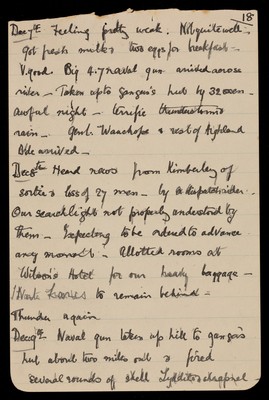 18
Dec 7th Feeling pretty weak. Not quite well -
got fresh milk & two eggs for breakfast -
V. good. Big 4.7 naval gun arrived across
river - Taken up to Ganger's hut by 32 oxen -
awful night - terrific thunderstorms
rain - Genl. Wauchope & rest of Highland
Bde arrived -
Dec 8th Heard news from Kimberley of
sortie & loss of 27 men - by a despatch rider.
Our searchlights not properly understood by
them - Expecting to be ordered to advance
any moment - Allotted rooms at
Wilson's Hotel for our heavy baggage -
to remain behind -
Thunder again
Dec 9th Naval gun taken up hill to ganger's
hut about two miles out & fired
several rounds of shell Lyddite & shrapnel